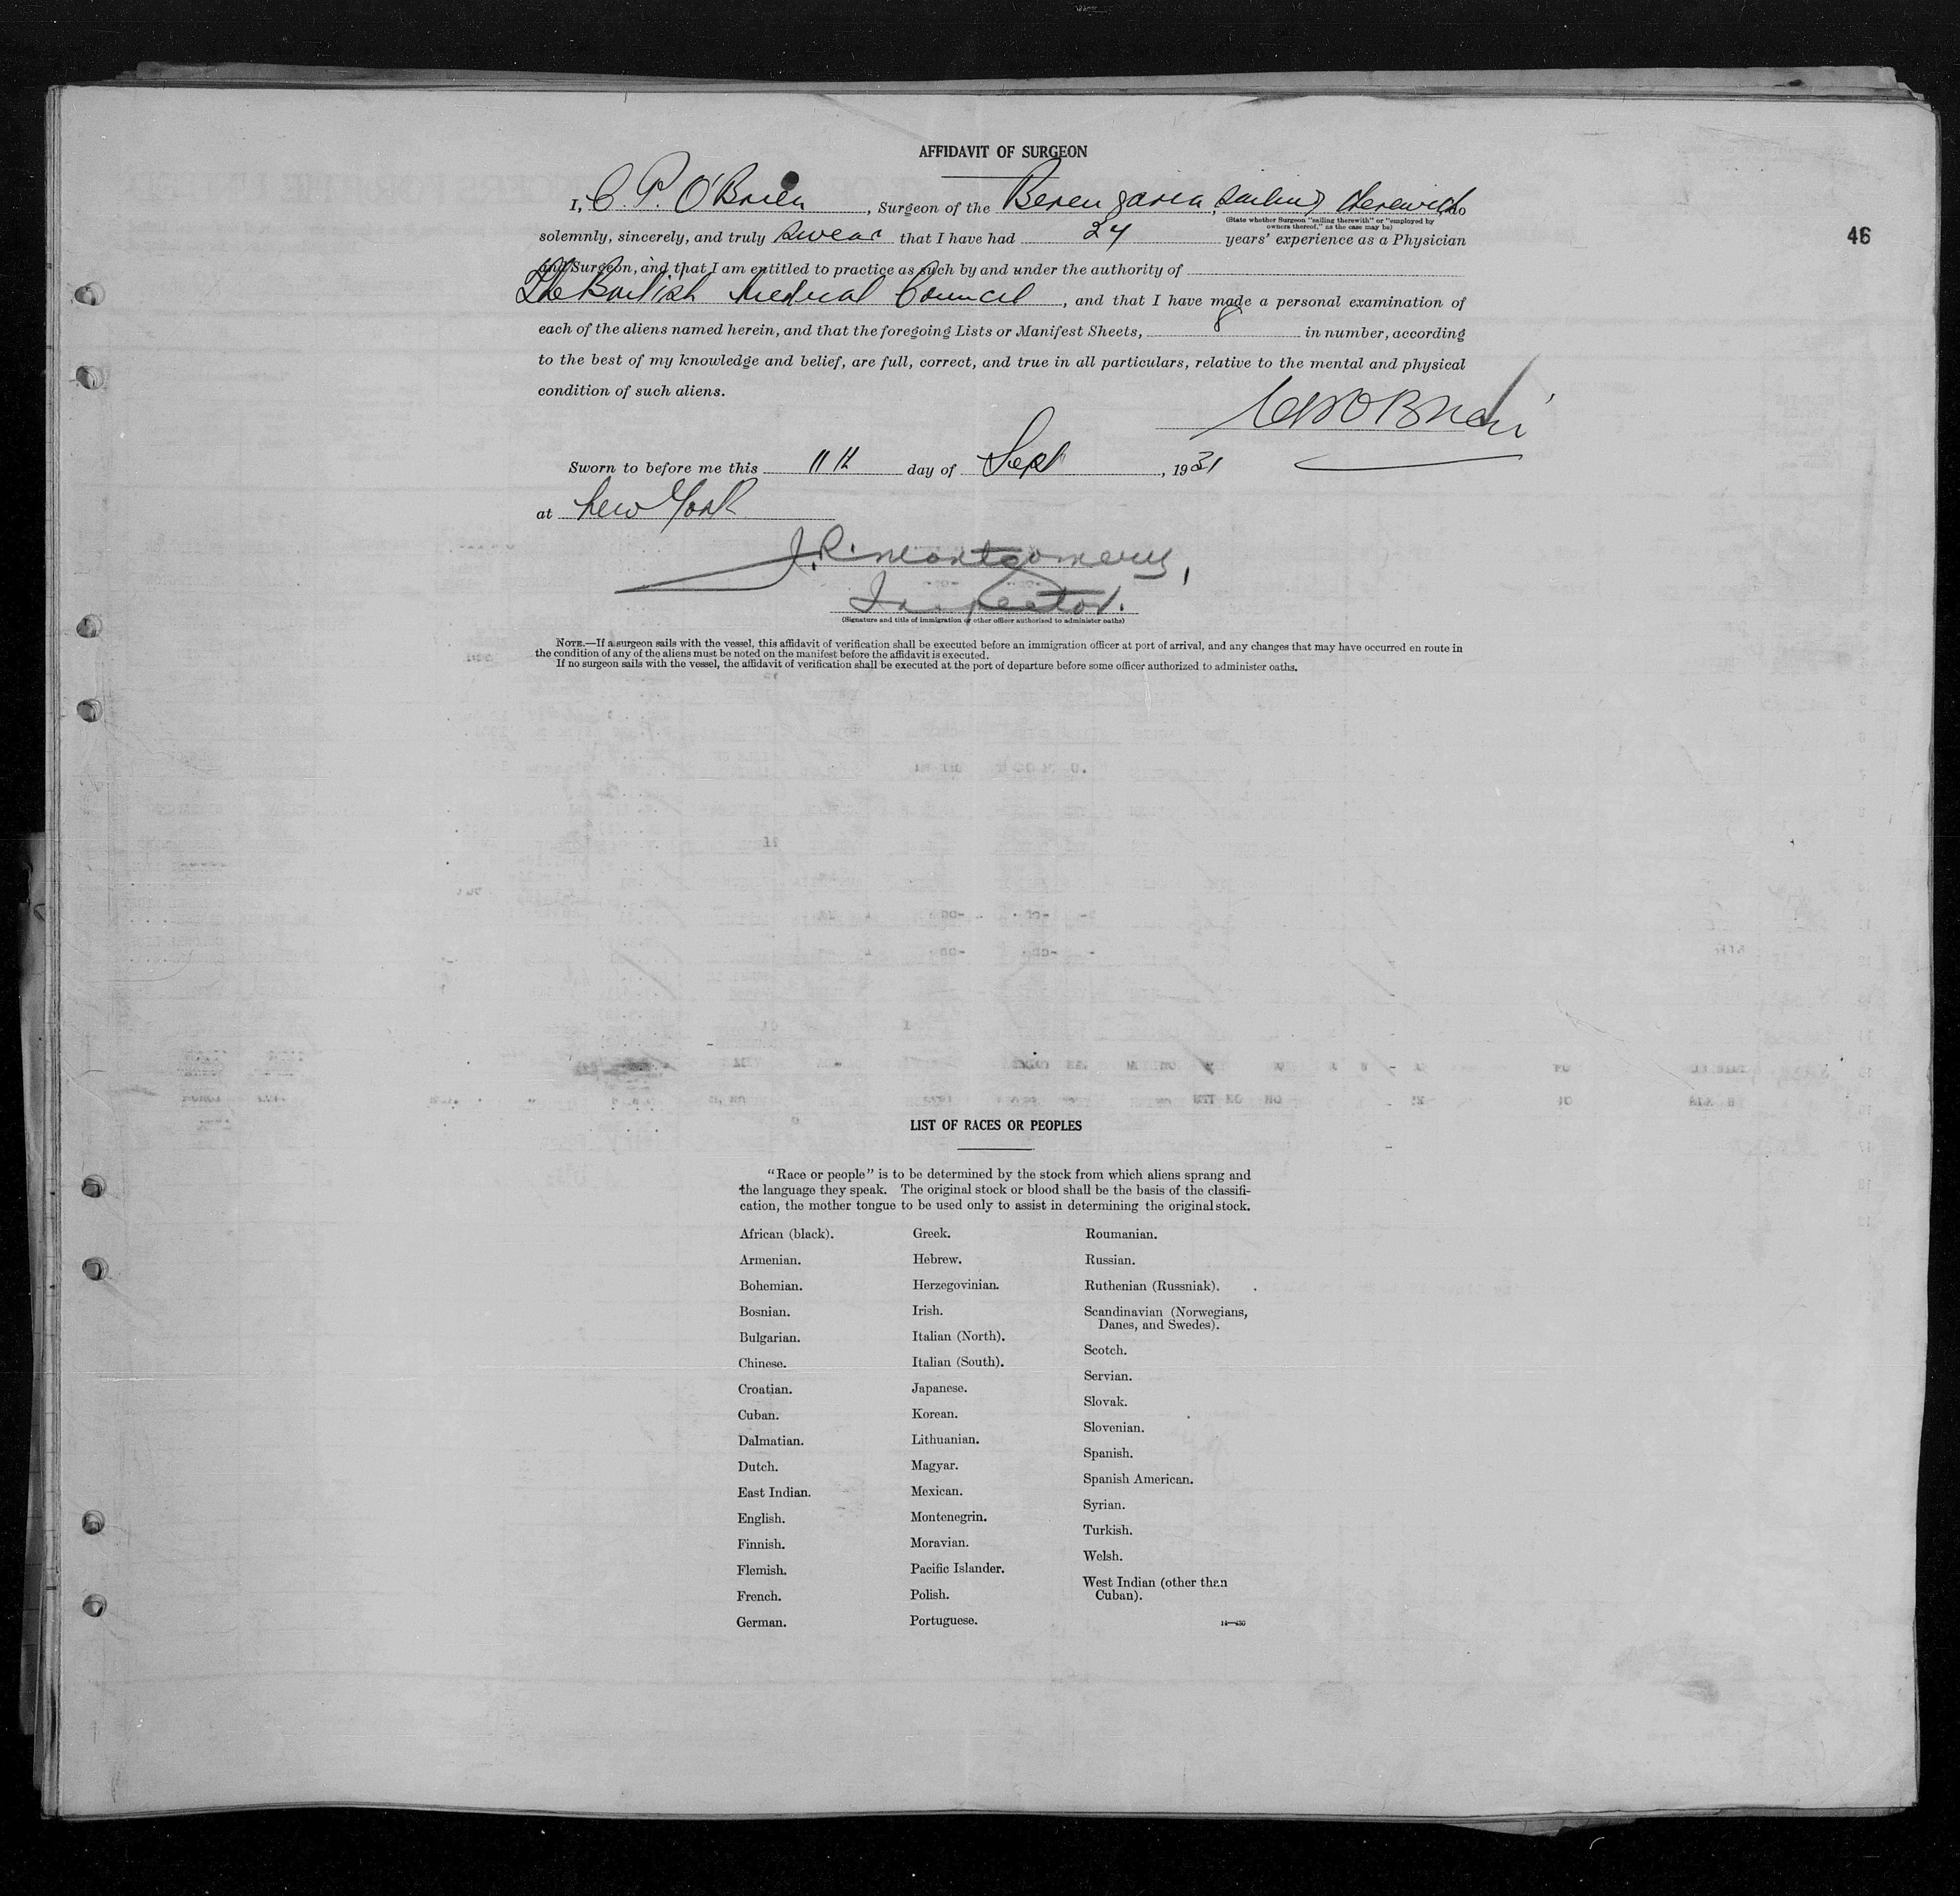 AFFIDAVIT OF SURGEON
I, C. P. O'Brien, Surgeon of the Berengaria, sailing therewith do
(State whether Surgeon "sailing therewith" or "employed by
owners thereof," as the case may be)
46
solemnly, sincerely, and truly swear that I have had 24 years' experience as a Physician
and Surgeon, and that I am entitled to practice as such by and under the authority of
The British Medical Council, and that I have made a personal examination of
each of the aliens named herein, and that the foregoing Lists or Manifest Sheets, 8 in number, according
to the best of my knowledge and belief, are full, correct, and true in all particulars, relative to the mental and physical
condition of such aliens.
CPO'Brien
Sworn to before me this 11th day of Sept, 1931
at New York
J.R. Montgomery,
Inspector.
(Signature and title of immigration or other officer authorized to administer oaths)
NOTE.—If a surgeon sails with the vessel, this affidavit of verification shall be executed before an immigration officer at port of arrival, and any changes that may have occurred en route in
the condition of any of the aliens must be noted on the manifest before the affidavit is executed.
If no surgeon sails with the vessel, the affidavit of verification shall be executed at the port of departure before some officer authorized to administer oaths.
LIST OF RACES OR PEOPLES
"Race or people" is to be determined by the stock from which aliens sprang and
the language they speak. The original stock or blood shall be the basis of the classifi-
cation, the mother tongue to be used only to assist in determining the original stock.
African (black).
Armenian.
Bohemian.
Bosnian.
Bulgarian.
Chinese.
Croatian.
Cuban.
Dalmatian.
Dutch.
East Indian.
English.
Finnish.
Flemish.
French.
German.
Greek.
Hebrew.
Herzegovinian.
Irish.
Italian (North).
Italian (South).
Japanese.
Korean.
Lithuanian.
Magyar.
Mexican.
Montenegrin.
Moravian.
Pacific Islander.
Polish.
Portuguese.
Roumanian.
Russian.
Ruthenian (Russniak).
Scandinavian (Norwegians,
Danes, and Swedes).
Scotch.
Servian.
Slovak.
Slovenian.
Spanish.
Spanish American.
Syrian.
Turkish.
Welsh.
West Indian (other than
Cuban).